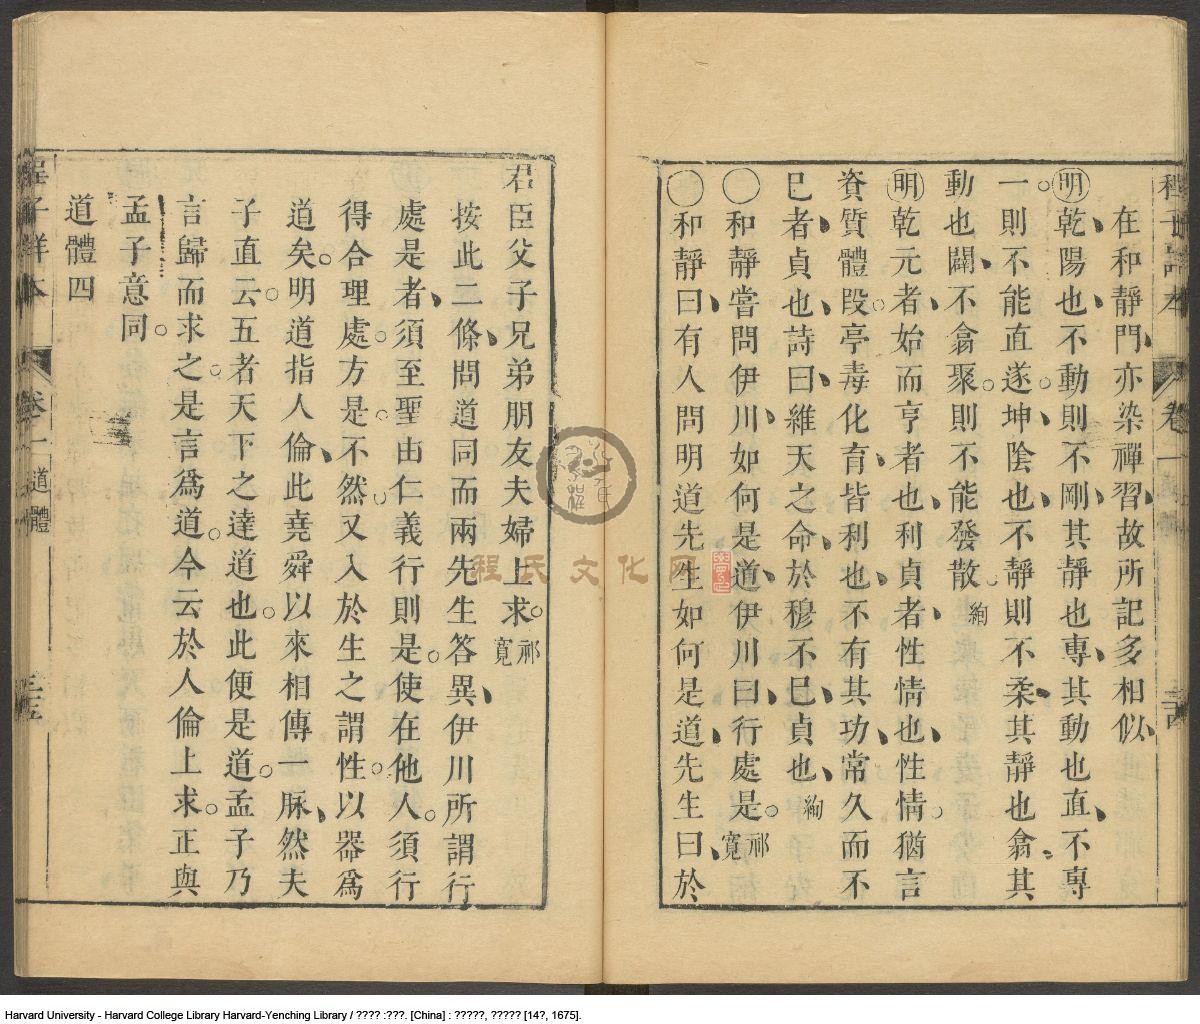 在和靜門亦染禪習故所記多相似
明乾陽也不動則不剛其靜也專其動也直不專
一則不能直遂坤陰也不靜則不柔其靜也翕其
動也闢不翕聚則不能發散絢
明乾元者始而亨者也利貞者性情也性情猶言
資質體段亭毒化育皆利也不有其功常久而不
已者貞也詩曰維天之命於穆不已貞也絢
〇和靜嘗問伊川如何是道伊川曰行處是祁寬
〇和靜曰有人問明道先生如何是道先生曰於
君臣父子兄弟朋友夫婦上求祁寬
按此二條問道同而兩先生答異伊川所謂行
處是者須至聖由仁義行則是使在他人須行
得合理處方是不然又入於生之謂性以器爲
道矣明道指人倫此堯舜以來相傳一脉然夫
子直云五者天下之達道也此便是道孟子乃
言歸而求之是言爲道今云於人倫上求正與
孟子意同
道體四
程子詳本 卷一 道體 三五
程氏文化网
Harvard University - Harvard College Library Harvard-Yenching Library / ???? :???. [China] : ?????, ????? [14?, 1675].